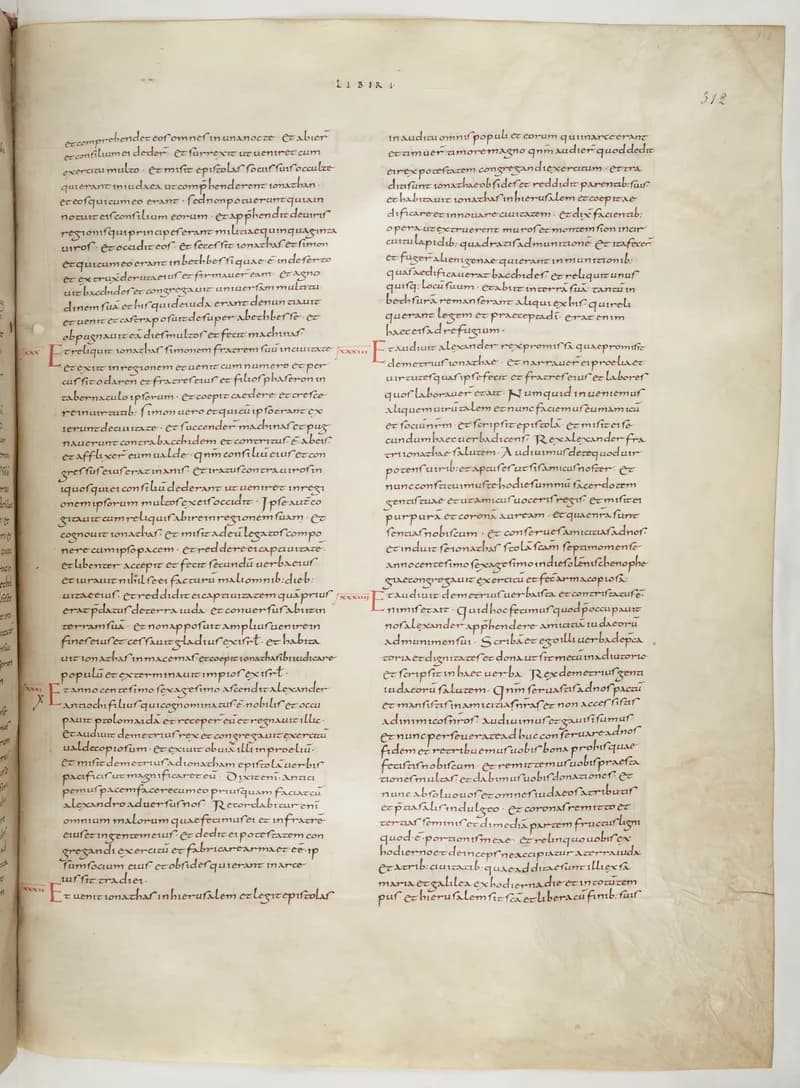 LIBRI
312
et comprehendet eos omnes in una nocte · Et abier̄
et consilium ei deder̄ · Et surrexit ut veniret cum
exercitu multo · Et misit epistolas sociis suis occulte
qui erant in iudaea ut comprehenderent ionathan ·
et eos qui cum eo erant · sed non potuerunt quia in
notuit eis consilium eorum · Et app̄hendit de viris
regionis qui principes erant militiae quinquaginta
viros · Et occidit eos · Et secessit ionathas et simon
et qui cum eo erant in bethbessi quae · ē · in deserto
et extruxit diruta eius et firmaver̄ eam · Et agno
vit bacchides et congregavit universam multitu
dinem suā et his qui de iuda erant denuntiavit
et venit et castra posuit desuper abethbesse · et
obpugnavit eā dies multos et fecit machinas
xxx Et reliquit ionathas simonem fratrem suū in civitate
et exit in regionem et venit cum numero et per
cussit odaren et fratres eius et filios phaseron in
tabernaculo ipsorum · Et coepit caedere et cresce
re in virtutib; simon vero et qui cū ipso erant ex
ierunt de civitate · et succender̄ machinas et pug
naverunt contra bacchidem et contritus · ē · ab eis
et afflixer̄ eum valde · qn̄m consiliū eius et con
gressus eius erat inanis · Et iratus contra viros in
iquos qui ei consiliū dederant ut veniret in regi
onem ipsorum multos ex eis occidit · Ipse aut̄ co
gitavit cum reliquis abire in regionem suam · Et
cognovit ionathas · Et misit ad eū legatos compo
nere cum ipso pacem · Et reddere ei captivitatē ·
Et libenter accepit et fecit secundū verba eius
et iuravit nihil se ei facturū mali omnib; dieb;
vitae eius · Et reddidit ei captivitatem quā prius
erat p̄datus de terra iuda · et conversus abiit in
terram suā · Et non apposuit amplius venire in
fines eius et cessavit gladius ex isrł · et habita
vit ionathas in macemas et coepit ionathas ibi iudicare
populū et exterminavit impios ex isrł ·
xxxi Et anno centesimo sexagesimo ascendit alexander
antiochi filius qui cognominatus · ē · nobilis et occu
pavit ptolomaidā et receper̄ eū et regnavit illic ·
Et audivit demetrius rex et congregavit exercitū
valde copiosum · Et exivit obviā illi in proeliū ·
Et misit demetrius ad ionatham epistolā verbis
pacificis ut magnificaret eū · Dixit eni · antici
pemus pacem facere cum eo priusquam faciat cū
alexandro adversus nos · Recordabitur eni
omnium malorum quae fecimus ei et in fratrē
eius et in gentem eius et dedit ei potestatem con
gregandi exercitū et fabricare arma et eē · ip
sum socium eius et obsides qui erant in arce
iussit tradi ei ·
xxxii Et venit ionathas in hierusalem et legit epistolas
in auditu omnis populi et eorum qui in arce erant
et timuer̄ timore magno qn̄m audier̄ quod dedit
ei rex potestatem congregandi exercitum · Et tra
diti sunt ionathae obsides et reddidit parentib; suis
et habitavit ionathas in hierusalem et coepit ae
dificare et innovare civitatem · Et dix̄ facientib;
opera ut extruerent muros et montem sion in cir
cuitu lapidib; quadratis ad munitionē · Et ita fecer̄
et fuger̄ alienigenae qui erant in munitionib;
quas aedificaverat bacchides et reliquit unus
quisq; locū suum · Et abiit in terrā suā tantū in
bethsurā remanserant aliqui ex his qui reli
querant legem et praecepta dī · erat enim
haec eis ad refugium ·
xxxiii Et audivit alexander rex promissa quae promisit
demetrius ionathae · Et narraver̄ ei proelia et
virtutes quas ipse fecit et fratres eius et labores
quos laboraver̄ et ait · Numquid inveniemus
aliquem virū talem et nunc faciemus eum amicū
et sociū nr̄m · Et scripsit epistolā · et misit ei se
cundum haec verba dicens · Rex alexander fra
tri ionathae salutem · Audivimus de te quod vir
potens virib; et aptus es ut sis amicus noster · Et
nunc constituimus te hodie summū sacerdotem
gentis tuae et ut amicus voceris regis · Et misit ei
purpurā et coronā auream · et quae nr̄a sunt
sentias nobiscum · et conserves amicitias ad nos ·
Et induit se ionathas stolā scām septimo mense ·
anno centesimo sexagesimo in die solēni scenophe
giae congregavit exercitū et fec̄ arma copiosa ·
xxxiiii Et audivit demetrius verba ista et contristatus · ē ·
nimis et ait · Quid hoc fecimus quod p̄occupavit
nos alexander app̄hendere amicitiā iudaeorū
ad munimen sui · Scribā et ego illi verba dep̄ca
toria et dignitates et dona ut sit mecū in adiutorio ·
et scripsit in haec verba · Rex demetrius genti
iudaeorū salutem · Qn̄m servastis ad nos pactū
et mansistis in amicitia nr̄a et non accessistis
ad inimicos nr̄os audivimus et gavisi sumus
et nunc perseverate adhuc conservare ad nos
fidem et retribuemus vobis bona pro his quae
fecistis nobiscum · Et remittemus vobis praesta
tiones multas et dabimus vobis donationes · Et
nunc absolvo vos et omnes iudaeos a tributis
et p̄tia salis indulgeo · Et coronas remitto et
tertias seminis et dimediā partem fructus ligni
quod · ē · portionis meae · Et relinquo vobis ex
hodierno et deinceps ne accipiatur a terra iuda
et a trib; civitatib; quae additae sunt illi ex sa
maria et galilea ex hodierna die et in totū tem
pus · et hierusalem sit scā et libera cū finib; suis